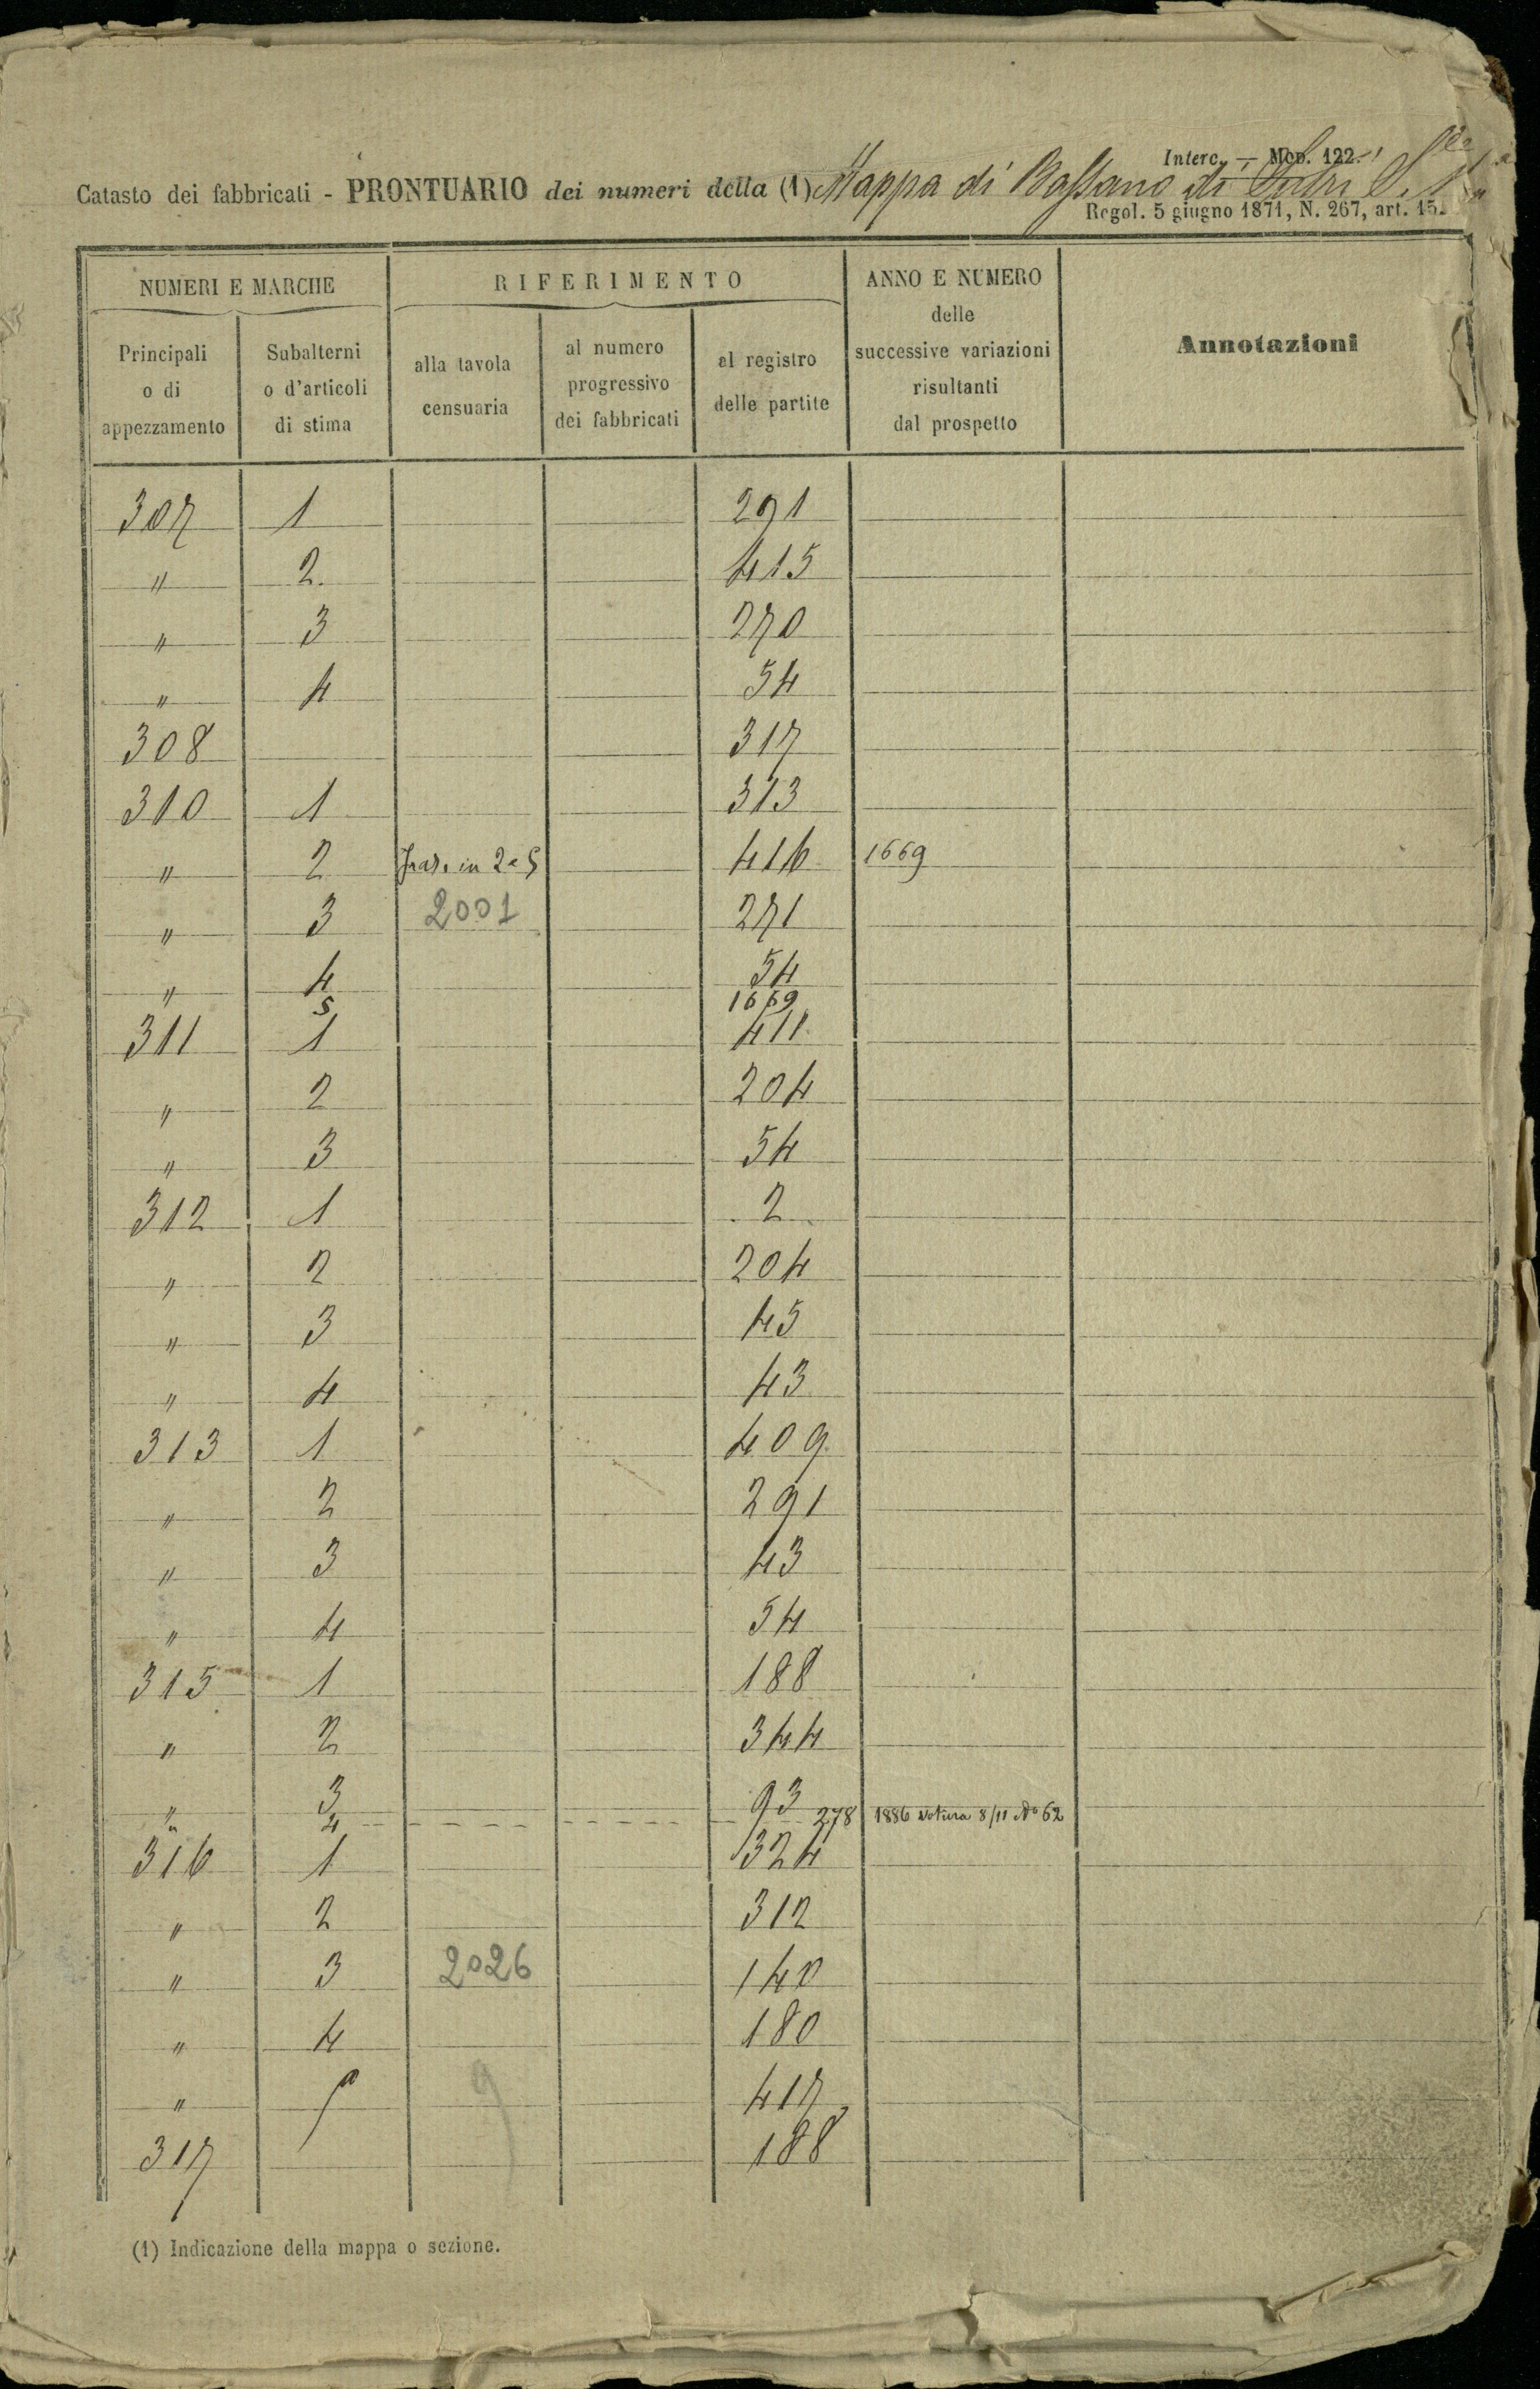 Interc. — Mod. 122.
Catasto dei fabbricati - PRONTUARIO dei numeri della (1) Mappa di Bassano di Sutri
Regol. 5 giugno 1871, N. 267, art. 15.
NUMERI E MARCHE RIFERIMENTO ANNO E NUMERO delle successive variazioni risultanti dal prospetto Annotazioni
Principali o di appezzamento Subalterni o d'articoli di stima alla tavola censuaria al numero progressivo dei fabbricati al registro delle partite
307 1 291
" 2. 415
" 3 270
" 4 54
308 317
310 1 313
" 2 in 2 e 5 416 1669
" 3 2001 271
" 4 54
5 1669
311 1 411
" 2 204
" 3 54
312 1 2
" 2 204
" 3 45
" 4 43
313 1 409
" 2 291
" 3 43
" 4 54
315 1 188
" 2 344
" 3 93
" 4 278 1886 Voltura 8/11 No 62
316 1 324
" 2 312
" 3 2026 140
" 4 180
" 417
317 188
(1) Indicazione della mappa o sezione.